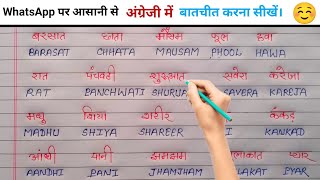 WhatsApp पर आसानी से अंग्रेजी में बातचीत करना सीखें।
बरसात छाता मौसम फूल हवा
BARASAT CHHATA MAUSAM PHOOL HAWA
रात पंचवटी शुरुआत सवेरा करेजा
RAT PANCHWATI SHURUA SAVERA KAREJA
मधु शिया शरीर कंकड़
MADHU SHIYA SHAREER KANKAD
आंधी पानी झमझम प्यार
AANDHI PANI JHAMJHAM LAKAT PYAR